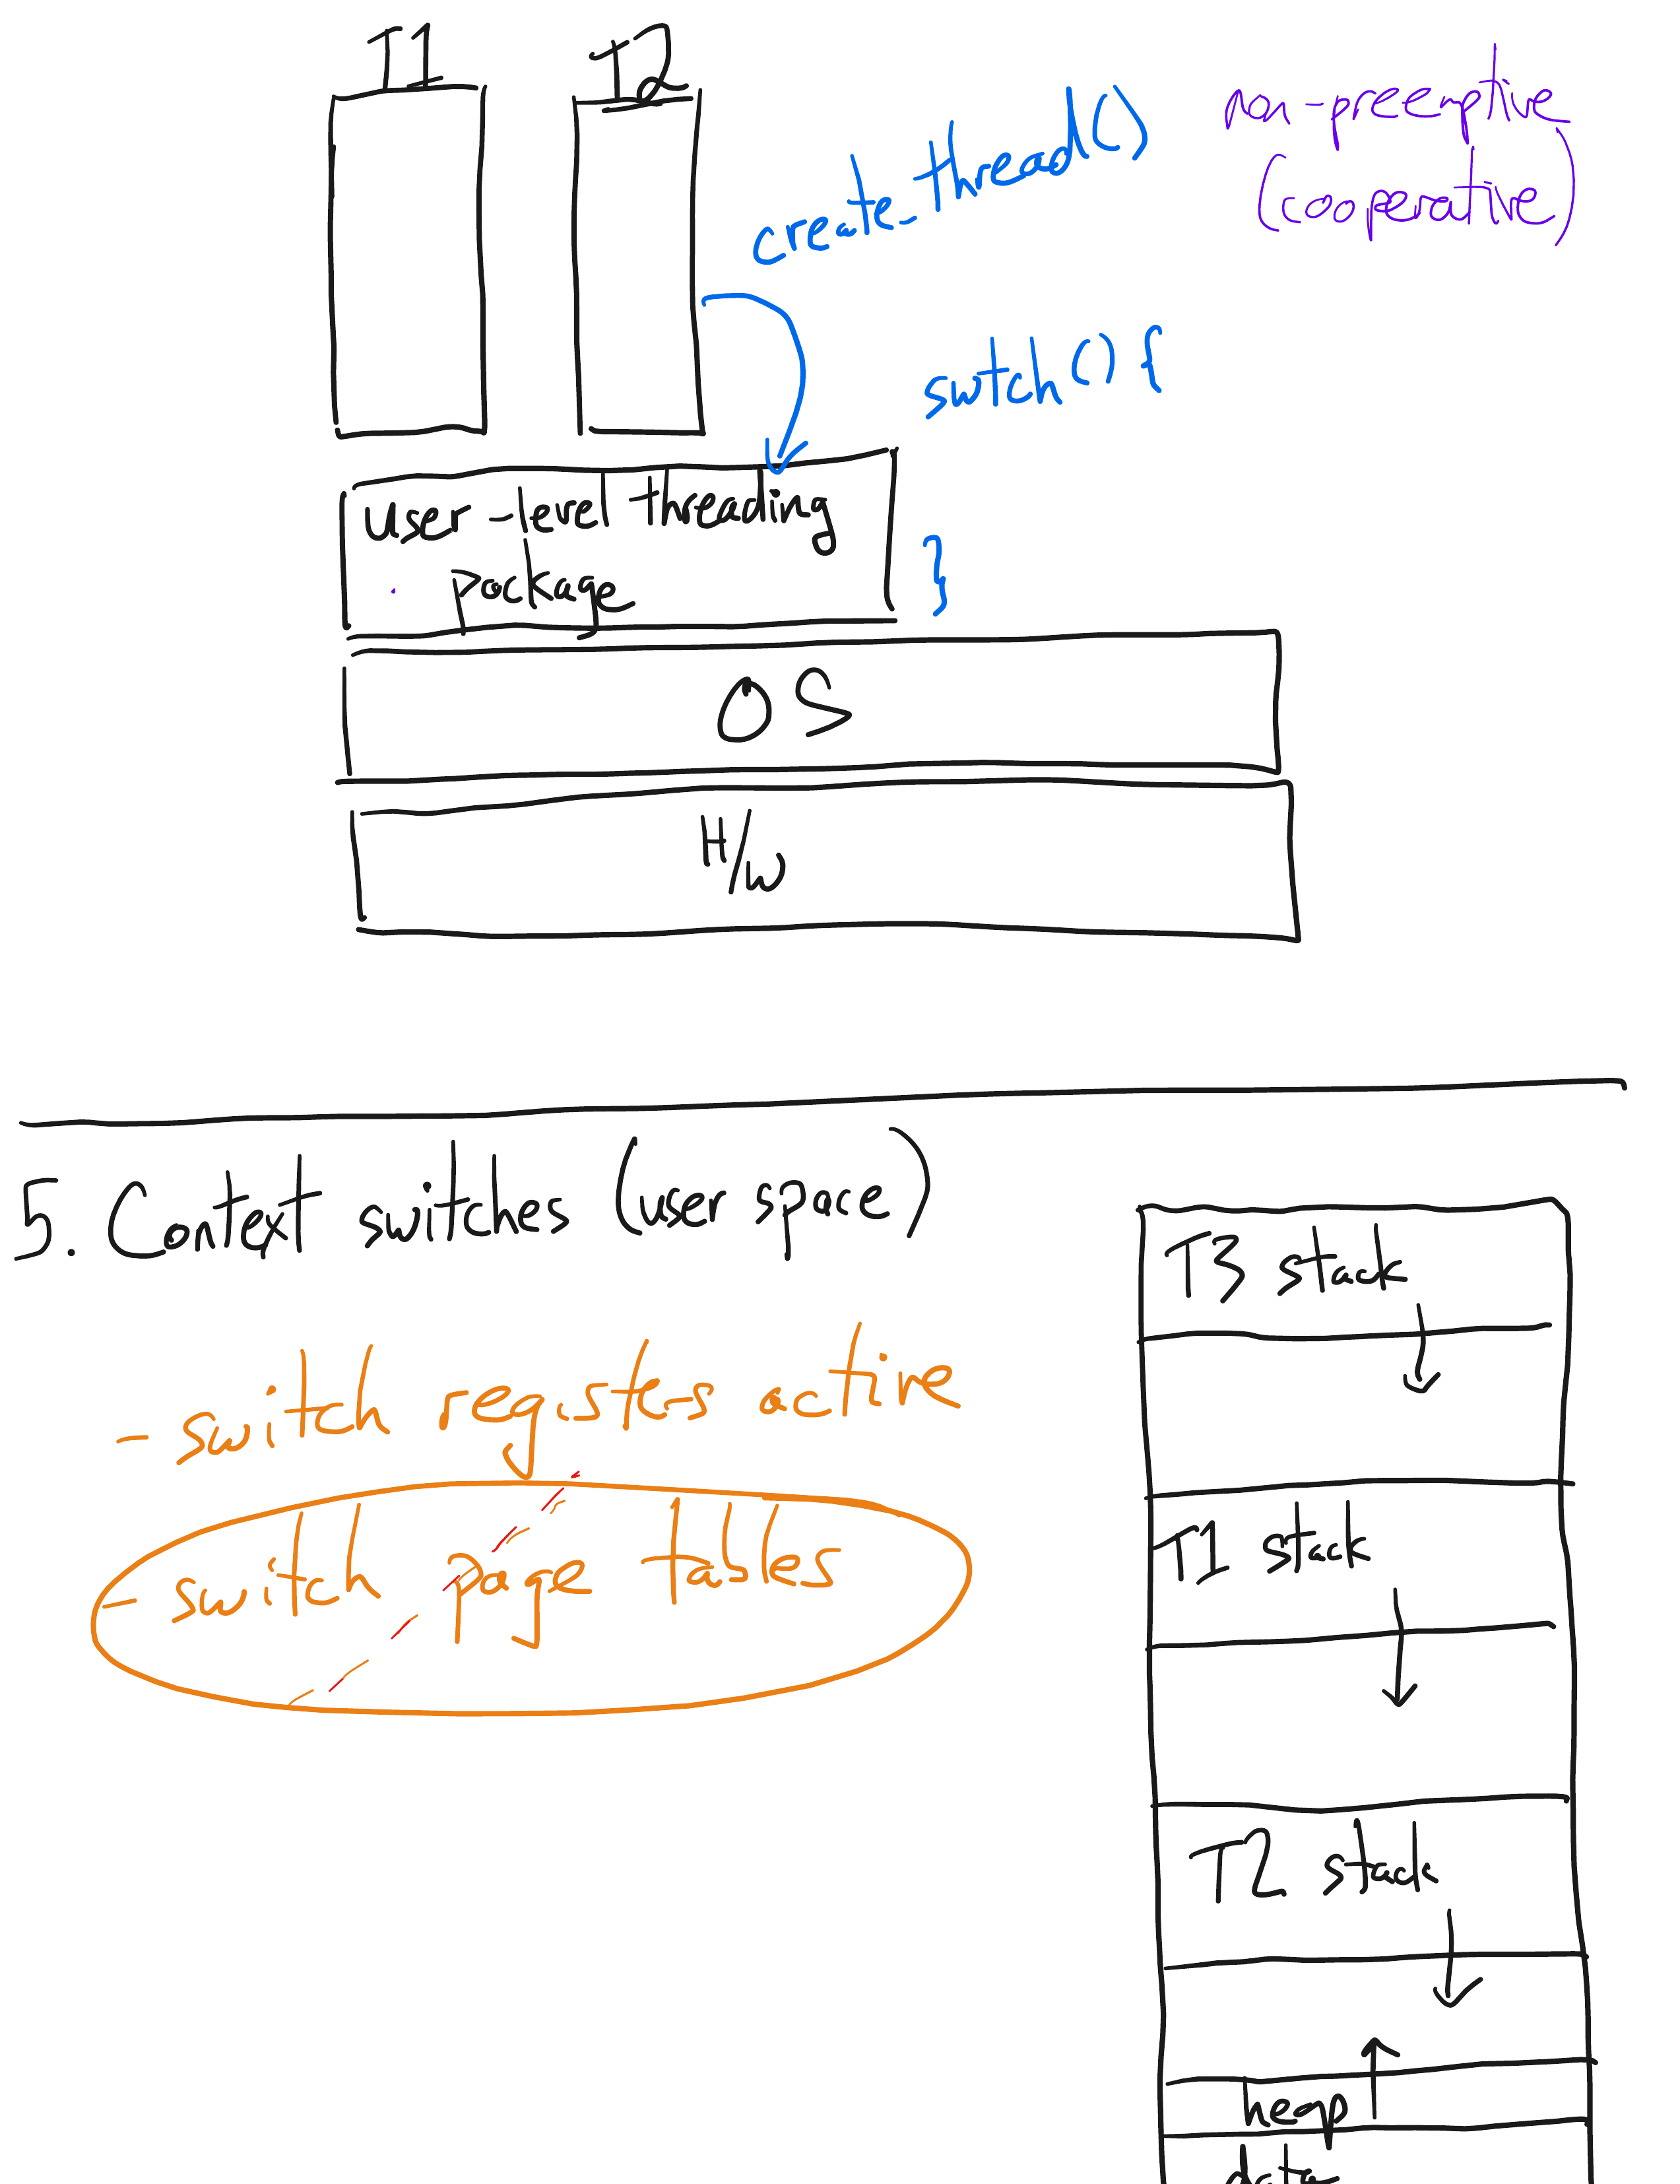 T1
T2
create_thread()
non-preemptive
(cooperative)
swtch() {
}
user-level threading
package
OS
H/W
5. Context switches (user space)
- switch registers active
- switch page tables
T3 stack
T1 stack
T2 stack
heap
data